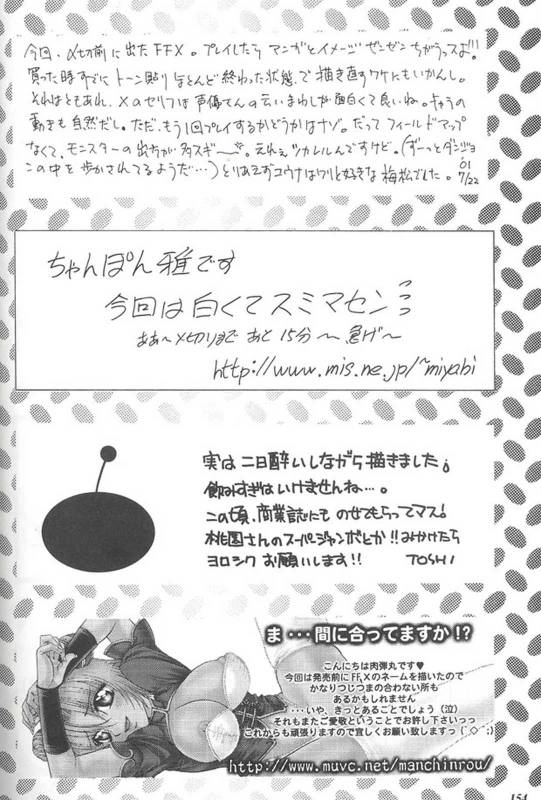 今回、〆切前に出たFFX。プレイしたらマンガとイメージゼンゼンちがうっスよ!!!
買った時すでにトーン貼りほとんど終わった状態で描き直すワケにもいかんし。
それはともあれ、Xのセリフは声優さんの云いまわしが面白くて良いね。キャラの
動きも自然だし。ただ、もう1回プレイするかどうかはナゾ。だってフィールドマップ
なくて、モンスターの出ちが多スギ〜。えれぇツカレルんですけど。(ずーっとダンジョ
ンの中を歩かされてるようだ…)とりあえずユウナはワリと好きな梅松でした。'01 7/22
ちゃんぽん雅です
今回は白くてスミマセンっっっ
ああ〜〆切りまであと15分〜急げ〜
http://www.mis.ne.jp/~miyabi
実は二日酔いしながら描きました。
飲みすぎはいけませんね…。
この頃、商業誌にものせてもらってマス!
桃園さんのスーパージャンボとか!!みかけたら
ヨロシクお願いします!! TOSHI
ま・・・間に合ってますか!?
こんにちは肉弾丸です♥
今回は発売前にFFXのネームを描いたので
かなりつじつまの合わない所も
あるかもしれません
・・・いや、きっとあることでしょう(泣)
それもまたご愛敬ということでお許し下さいっっ
これからも頑張りますので宜しくお願い致しますっ(´◇｀;)
http://www.muvc.net/manchinrou/
154